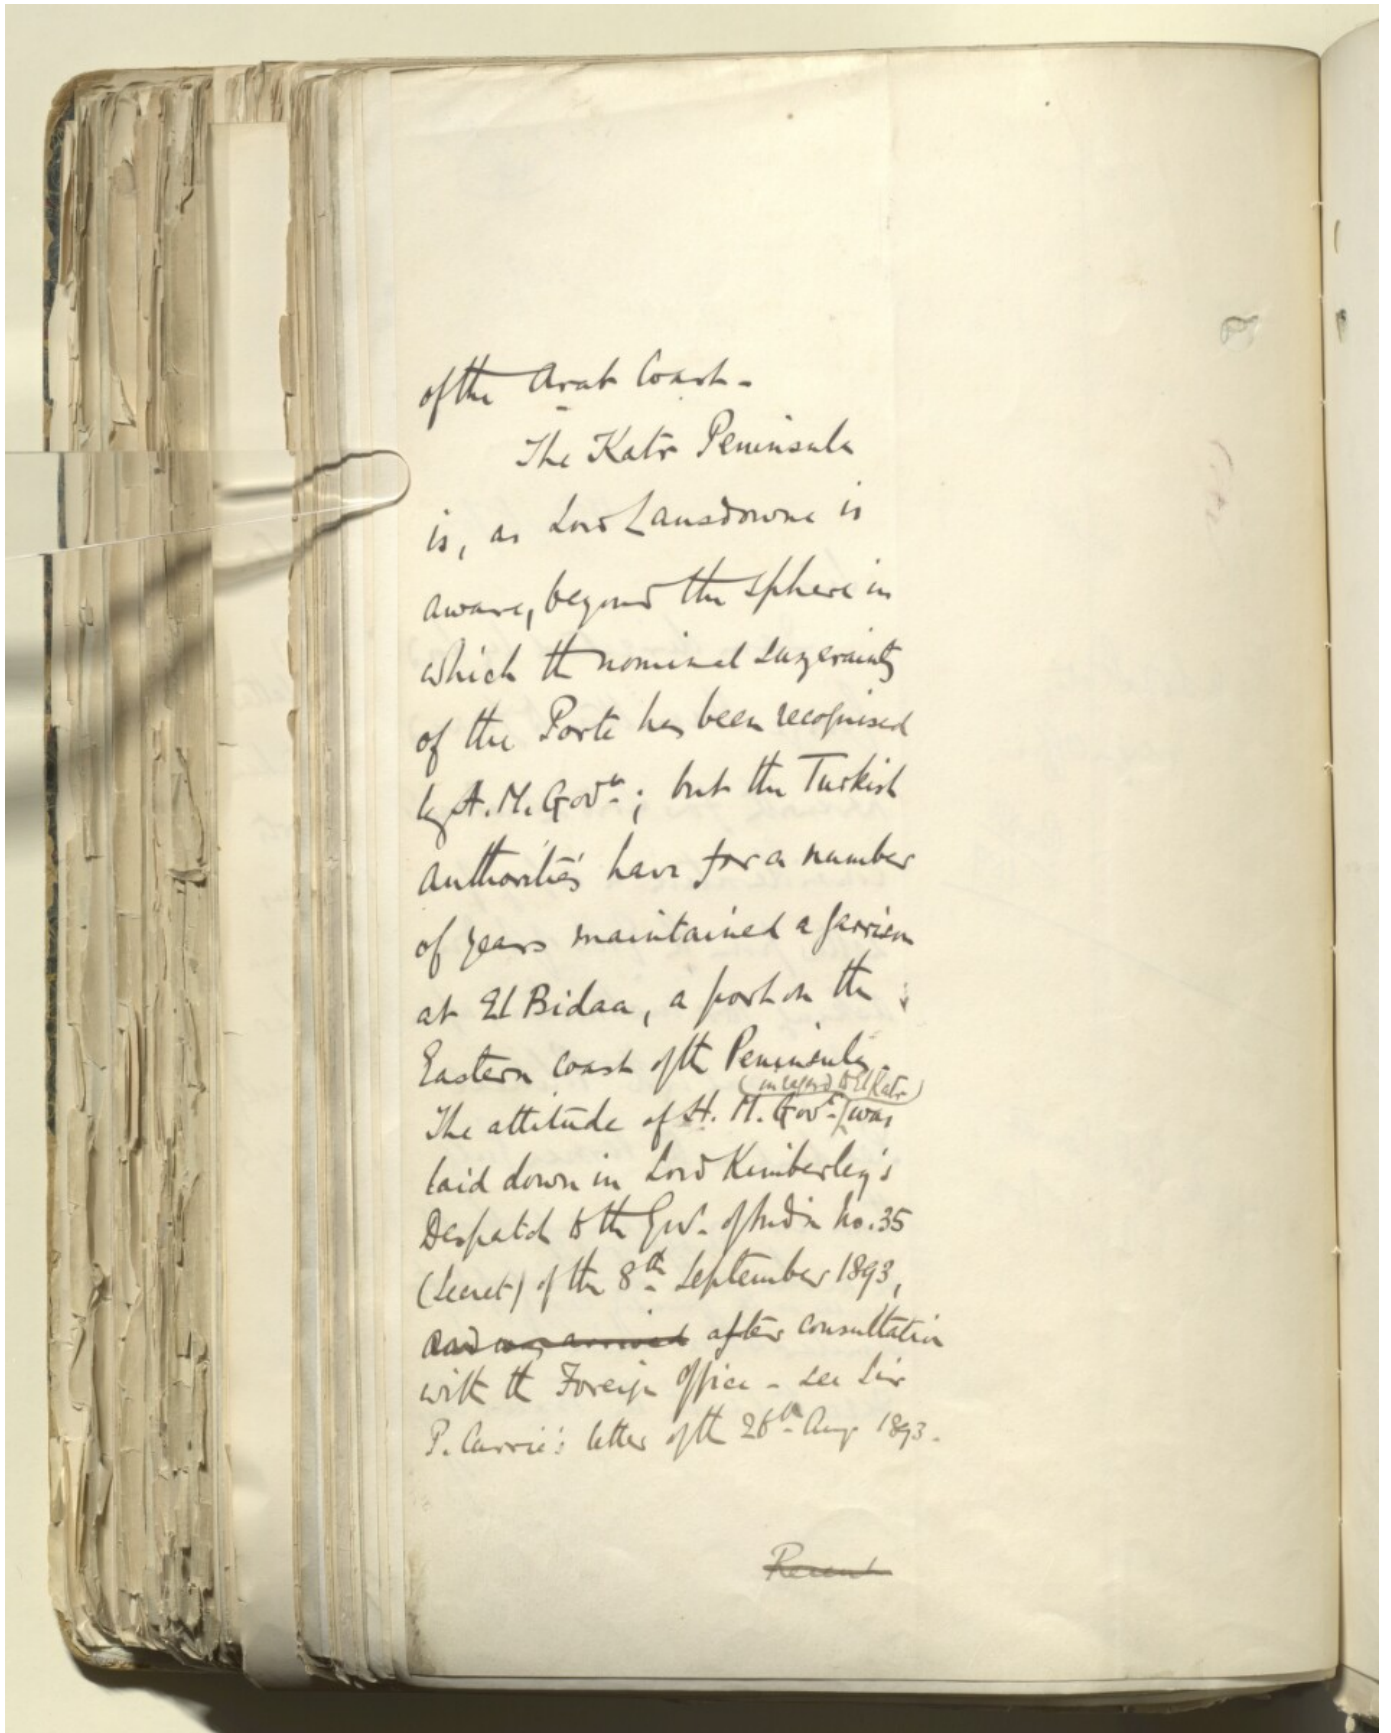 of the Arab Coast -
The Katr Peninsula
is, as Lord Lansdowne is
aware, beyond the sphere in
which the nominal suzerainty
of the Porte has been recognised
by H. M. Govt.; but the Turkish
authorities have for a number
of years maintained a garrison
at El Bidaa, a port on the
Eastern coast of the Peninsula.
(in regard to El Katr)
The attitude of H. M. Govt. was
laid down in Lord Kimberley's
Despatch to the Gov. of India No. 35
(Secret) of the 8th September 1893,
and was arrived after consultation
with the Foreign Office - see Sir
P. Currie's letter of the 26th Aug 1893.
Recent